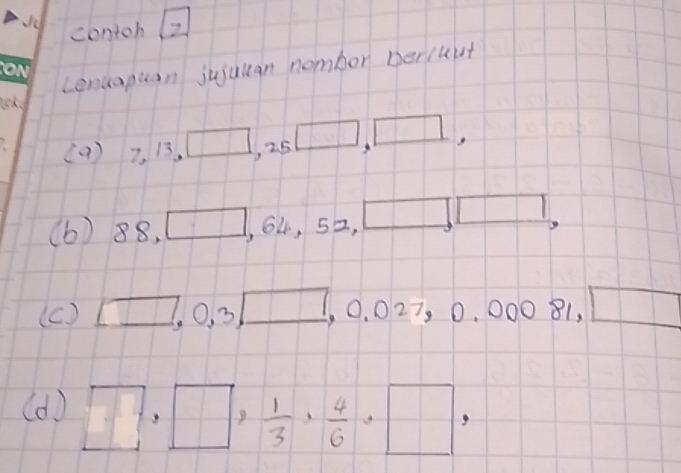 contoh 2
Lenkapkan jujukan nombor berikut
(a) 7, 13, , 25 , ,
(b) 88, , 64, 52, , ,
(c) , 0.3, , 0.027, 0.000 81,
(d) , , 1/3, 4/6, ,